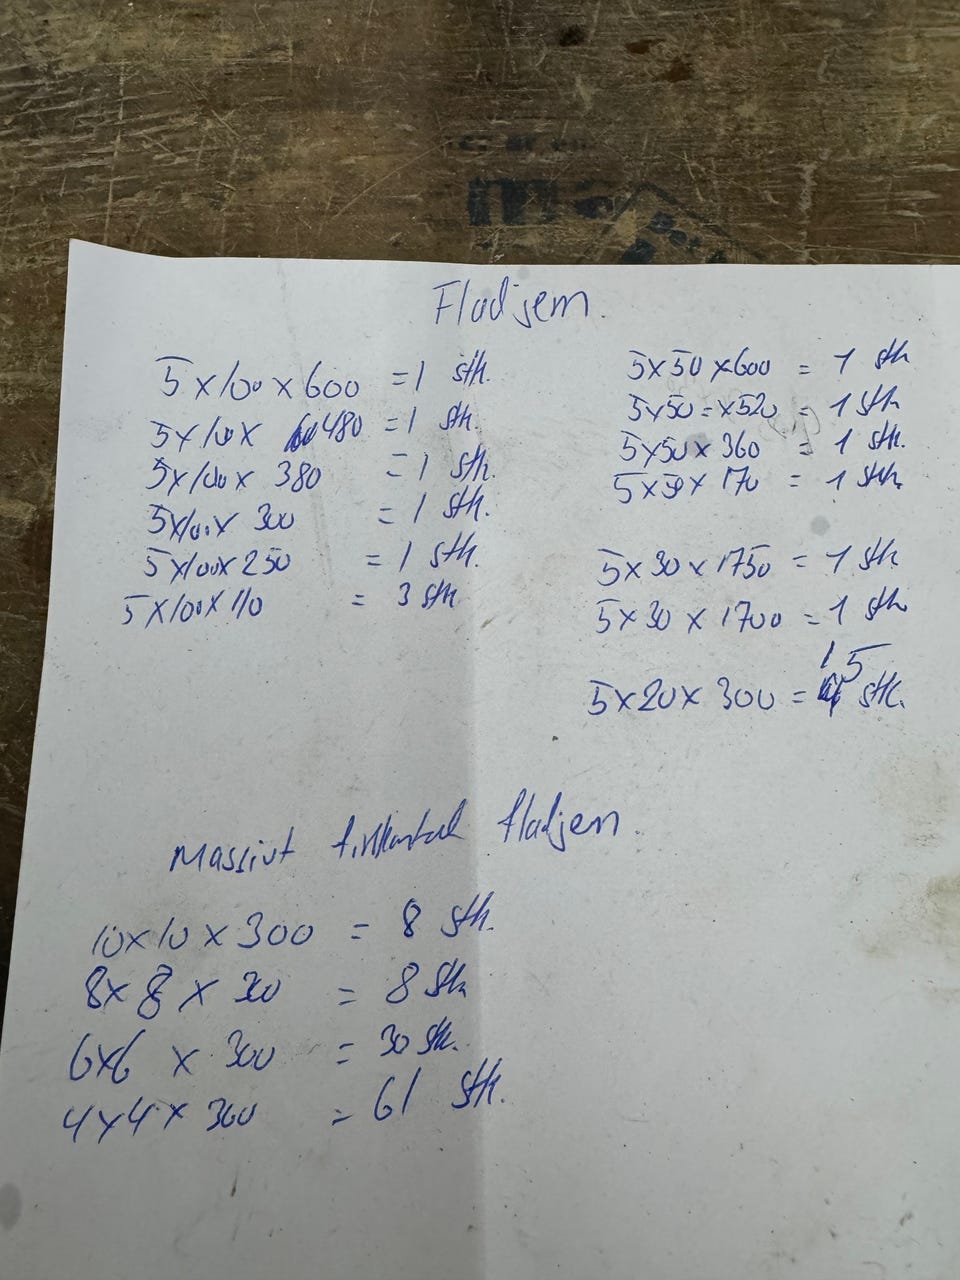 Fladjern.
5 x 100 x 600 = 1 stk.
5 x 100 x 480 = 1 stk.
5 x 100 x 380 = 1 stk.
5 x 100 x 300 = 1 stk.
5 x 100 x 250 = 1 stk.
5 x 100 x 110 = 3 stk
5 x 50 x 600 = 1 stk
5 x 50 = x 520 = 1 stk
5 x 50 x 360 = 1 stk.
5 x 50 x 170 = 1 stk.
5 x 30 x 1750 = 1 stk
5 x 30 x 1700 = 1 stk
5 x 20 x 300 = 15 stk.
Massivt firkantet fladjern.
10 x 10 x 300 = 8 stk.
8 x 8 x 300 = 8 stk
6 x 6 x 300 = 30 stk.
4 x 4 x 300 = 61 stk.